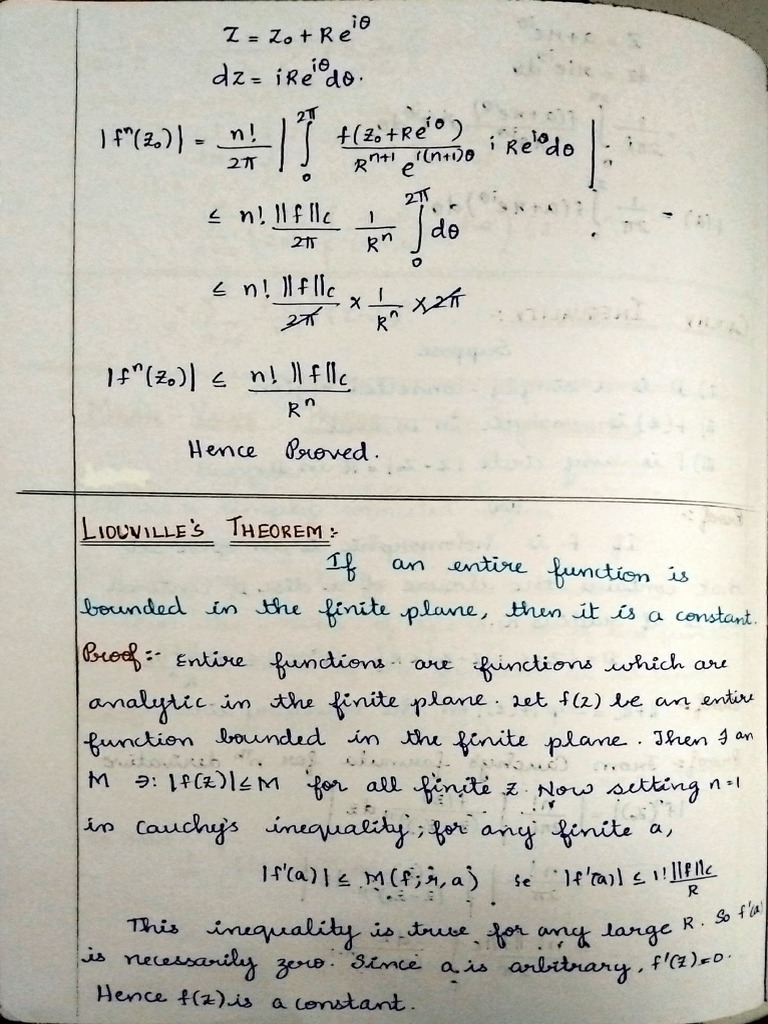 z = z₀ + Re^{iθ}
dz = iRe^{iθ}dθ.
|fⁿ(z₀)| = n!/2π | ∫₀^{2π} f(z₀+Re^{iθ}) / R^{n+1} e^{i(n+1)θ} i Re^{iθ}dθ |
≤ n! ||f||c / 2π 1/Rⁿ ∫₀^{2π} dθ
≤ n! ||f||c / 2π × 1/Rⁿ × 2π
|fⁿ(z₀)| ≤ n! ||f||c / Rⁿ
Hence Proved.
LIOUVILLE'S THEOREM :-
If an entire function is
bounded in the finite plane, then it is a constant.
Proof :- Entire functions are functions which are
analytic in the finite plane. Let f(z) be an entire
function bounded in the finite plane. Then ∃ an
M ∋: |f(z)| ≤ M for all finite z. Now setting n=1
in Cauchy's inequality, for any finite a,
|f'(a)| ≤ M(f; r, a) se |f'(a)| ≤ 1! ||f||c / R
This inequality is true for any large R. So f'(a)
is necessarily zero. Since a is arbitrary, f'(z)=0.
Hence f(z) is a constant.